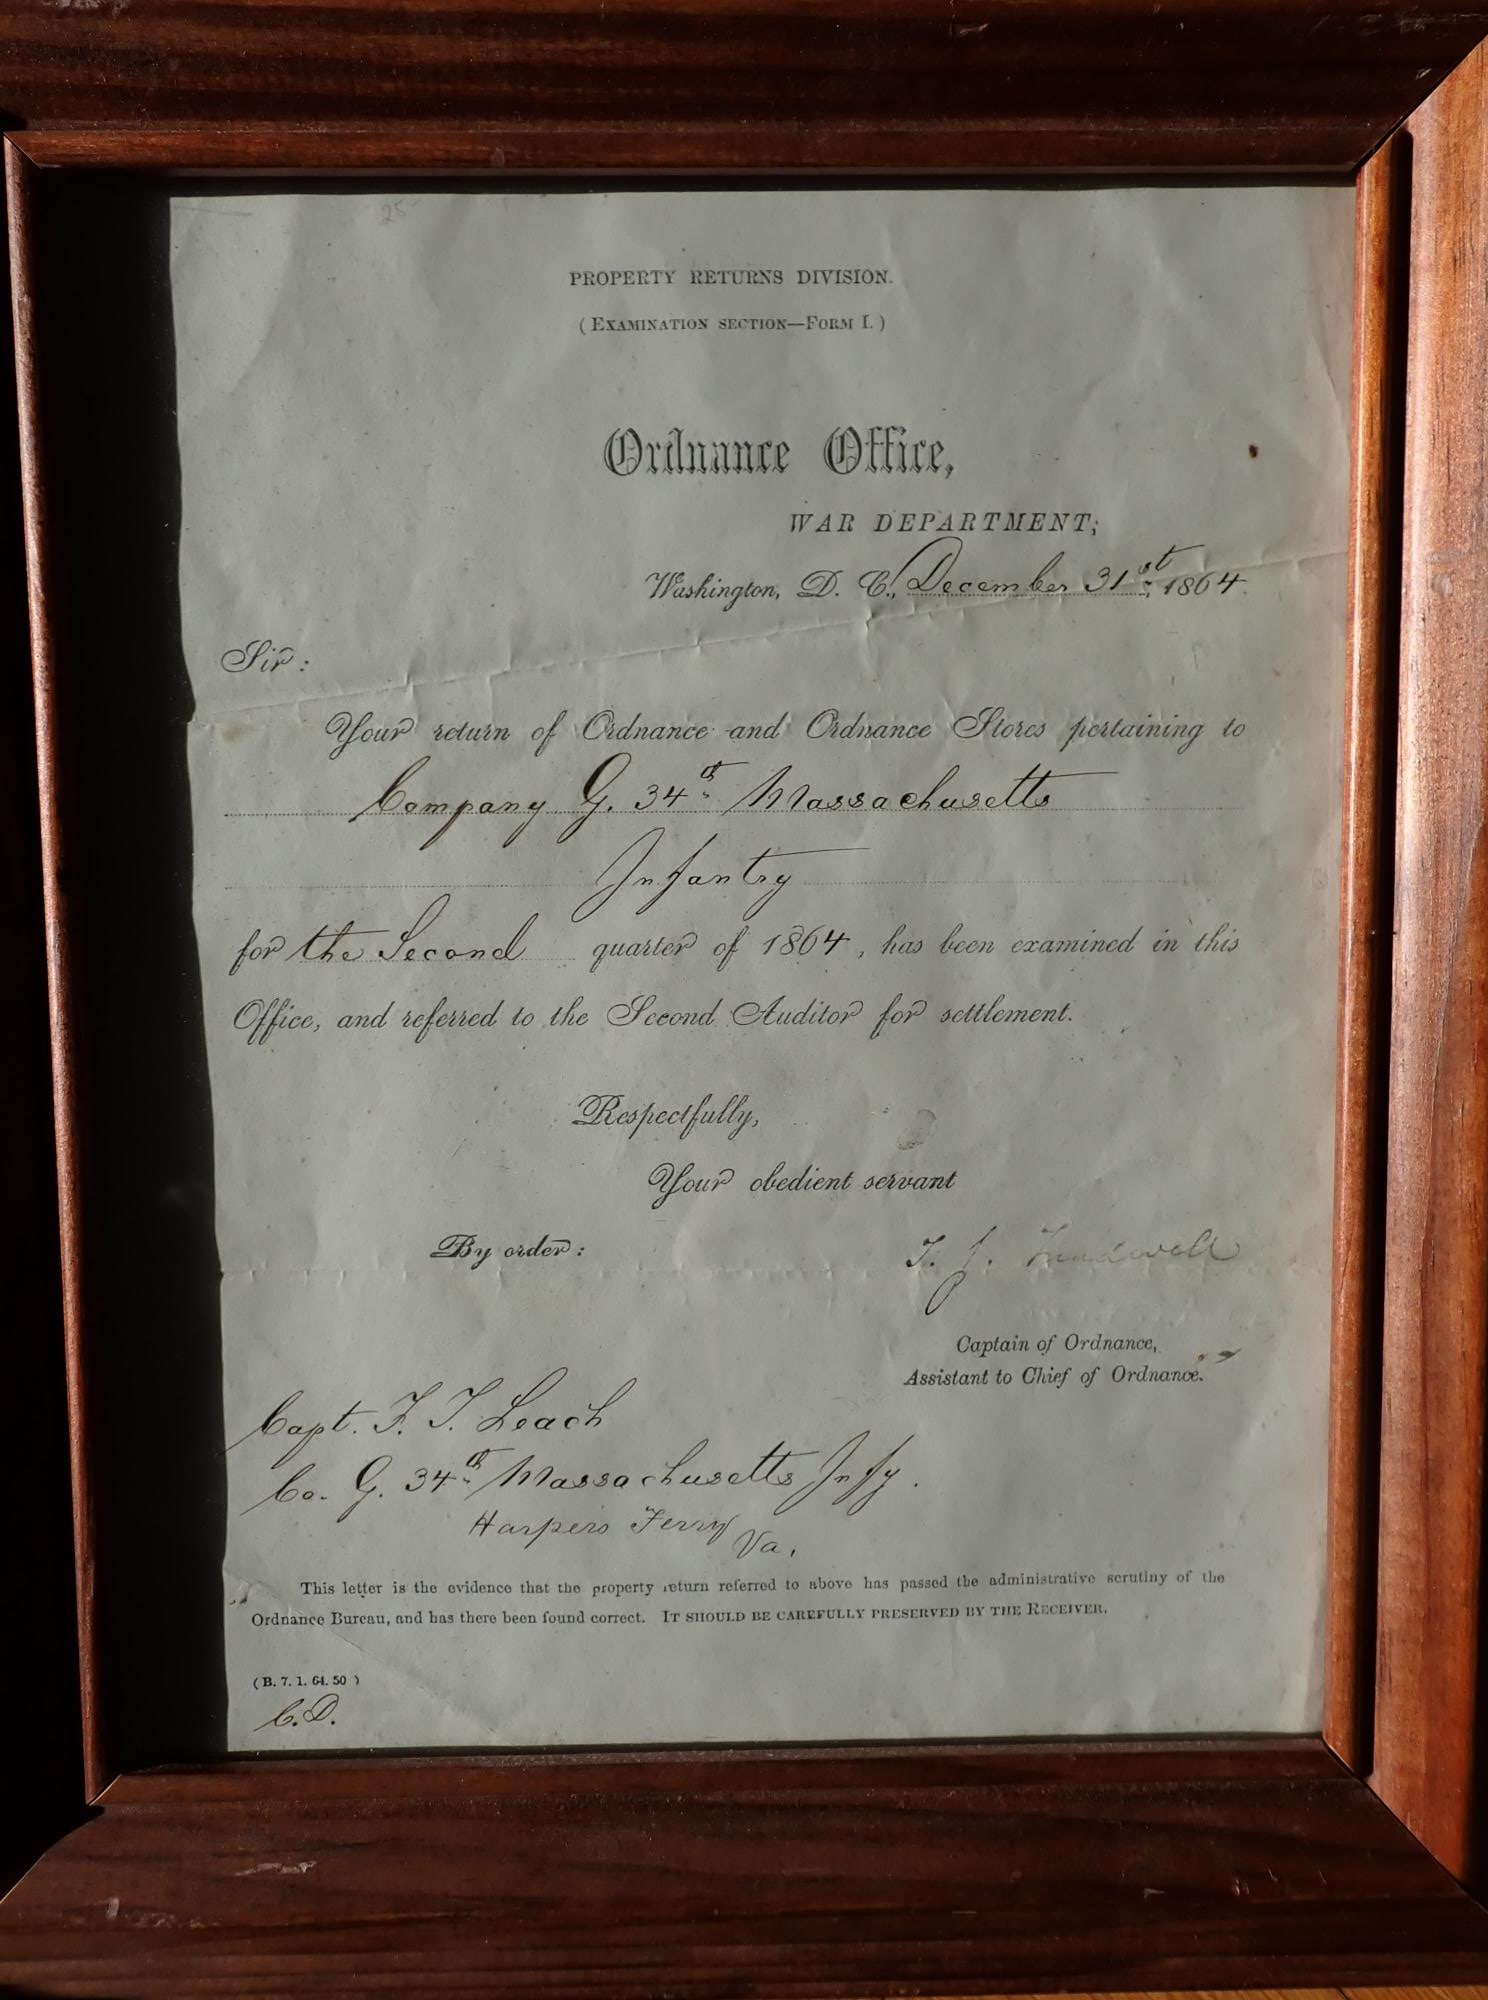 25
PROPERTY RETURNS DIVISION.
(EXAMINATION SECTION—FORM I.)
Ordnance Office,
WAR DEPARTMENT;
Washington, D. C., December 31st, 1864.
Sir:
Your return of Ordnance and Ordnance Stores pertaining to
Company G. 34th Massachusetts
Infantry
for the Second quarter of 1864, has been examined in this
Office, and referred to the Second Auditor for settlement.
Respectfully,
Your obedient servant
By order:
T. J. Treadwell
Captain of Ordnance,
Assistant to Chief of Ordnance.
Capt. F. T. Leach
Co. G. 34th Massachusetts Infy.
Harpers Ferry
Va.
This letter is the evidence that the property return referred to above has passed the administrative scrutiny of the
Ordnance Bureau, and has there been found correct. IT SHOULD BE CAREFULLY PRESERVED BY THE RECEIVER.
(B. 7. 1. 64. 50)
C.D.